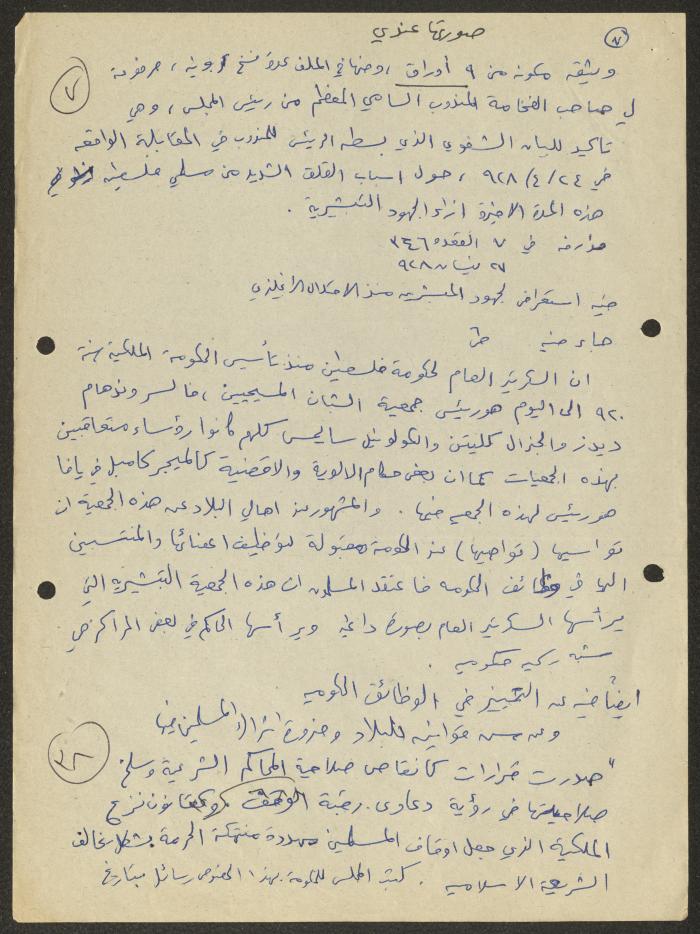 صورتها عندي
٧
٧
وثيقه مكونه من ٩ أوراق ، وضها في الملف عدة نسخ ، مرفوعة
لي صاحب الفخامة المندوب السامي المعظم من رئيس المجلس ، وهي
تاكيد للبيان الشفوي الذي بسطه الرئيس للمندوب في المقابلة الواقعه
في ٢٤ /٤ /٩٢٨ ، حول اسباب القلق الشديد من مسلمي فلسطين في
هذه المدة الاخيرة ازاء الجهود التبشيرية .
مؤرخه في ٧ القعده ٣٤٦
٢٧ نيسان ٩٢٨
فيه استعراض لجهود المبشرين منذ الاحتلال الانجليزي
جاء فيه
ان السكرتير العام لحكومة فلسطين منذ تأسيس الحكومة الملكية سنة
٩٢٠ الى اليوم هو رئيس جمعية الشبان المسيحيين ، فالسر وندهام
ديدز والجنرال كليتن والكولونيل سايمس كلهم كانوا رؤساء متعاقبين
بهذه الجمعيات كما ان بعض حكام الالوية والاقضية كالميجر كامبل في يافا
هو رئيس لهذه الجمعيه فيها . والمشهور عند اهالي البلاد عن هذه الجمعية ان
تواسيها (تواصيها) عند الحكومة مقبولة لتوظيف اعضائها والمنتسبين
اليها في وظائف الحكومه فاعتقد المسلمون ان هذه الجمعية التبشيريه التي
يرأسها السكرتير العام بصورة دائمة ويرأسها الحاكم في بعض المراكز هي
شبه رسميه حكوميه .
ايضاً فيه عن التمييز في الوظائف الحكوميه
وعن سن قوانين للبلاد وضرورة اشتراك المسلمين فيها
٣٨
" صدرت قرارات كانقاص صلاحية المحاكم الشرعية وسلخ
صلاحيتها في رؤية دعاوى رقبة الوقف ، وكقانون نزع
الملكية الذي جعل اوقاف المسلمين مهددة منتهكة الحرمة بشكل يخالف
الشريعة الاسلاميه . كتب المجلس للحكومة بهذا الخصوص رسائل بتاريخ